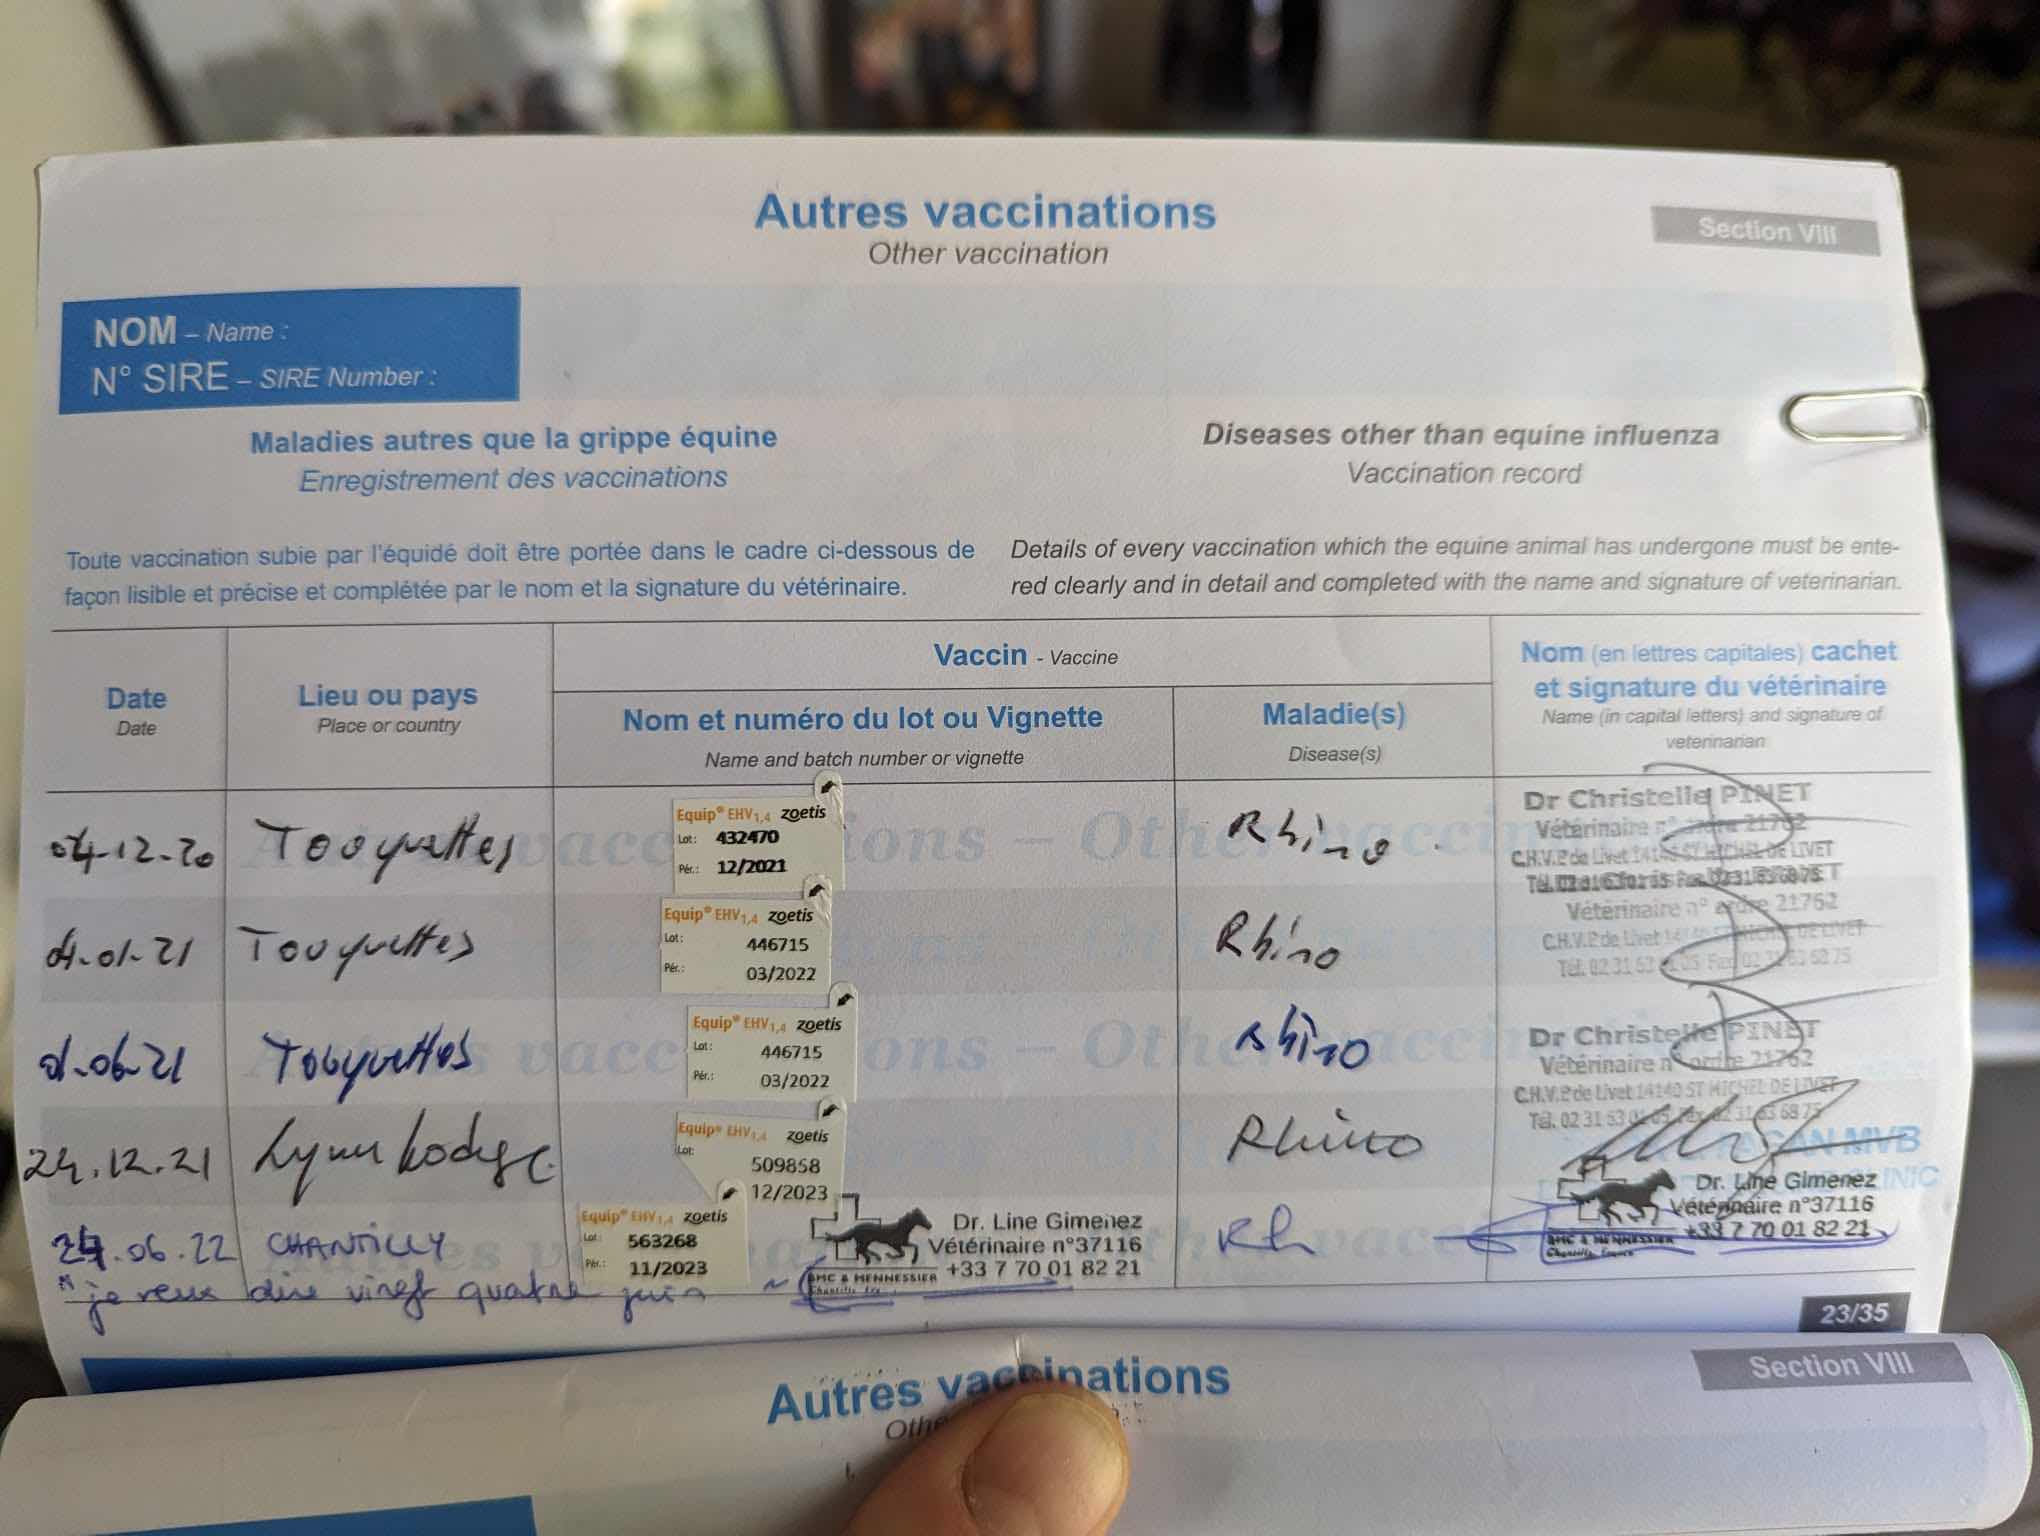 Autres vaccinations
Other vaccination
Section VIII
NOM – Name :
N° SIRE – SIRE Number :
Maladies autres que la grippe équine
Enregistrement des vaccinations
Diseases other than equine influenza
Vaccination record
Toute vaccination subie par l'équidé doit être portée dans le cadre ci-dessous de
façon lisible et précise et complétée par le nom et la signature du vétérinaire.
Details of every vaccination which the equine animal has undergone must be ente-
red clearly and in detail and completed with the name and signature of veterinarian.
Date
Date
Lieu ou pays
Place or country
Vaccin - Vaccine
Nom et numéro du lot ou Vignette
Name and batch number or vignette
Maladie(s)
Disease(s)
Nom (en lettres capitales) cachet
et signature du vétérinaire
Name (in capital letters) and signature of
veterinarian
04.12.20
Touquettes
Equip® EHV1,4 zoetis
Lot: 432470
Pér.: 12/2021
Rhino
Dr Christelle PINET
Vétérinaire n° ordre 21762
C.H.V.P. de Livet 14140 ST MICHEL DE LIVET
Touquettes
Equip® EHV1,4 zoetis
Lot: 446715
Pér.: 03/2022
Rhino
Vétérinaire n° ordre 21762
C.H.V.P. de Livet 14140 ST MICHEL DE LIVET
Tél. 02 31 63 01 05 Fax 02 31 63 68 75
Touquettes
Equip® EHV1,4 zoetis
Lot: 446715
Pér.: 03/2022
Rhino
Dr Christelle PINET
Vétérinaire n° ordre 21762
C.H.V.P. de Livet 14140 ST MICHEL DE LIVET
Tél. 02 31 63 01 05 Fax 02 31 63 68 75
24.12.21
Equip® EHV1,4 zoetis
Lot: 509858
12/2023
Rhino
MVB
CLINIC
24.06.22
CHANTILLY
Equip® EHV1,4 zoetis
Lot: 563268
Pér.: 11/2023
Dr. Line Gimenez
Vétérinaire n°37116
+33 7 70 01 82 21
BMC & MENNESSIER
Rh
Dr. Line Gimenez
Vétérinaire n°37116
+33 7 70 01 82 21
BMC & MENNESSIER
Chantilly, France
je veux dire vingt quatre juin
23/35
Autres vaccinations
Section VIII